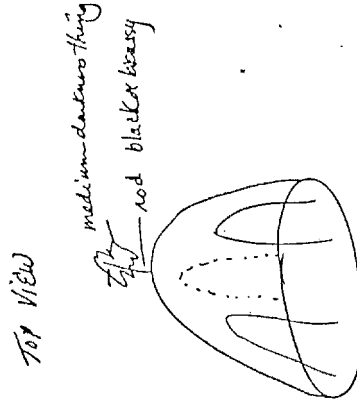 TOP VIEW
medium darkness thing
rod black or brassy